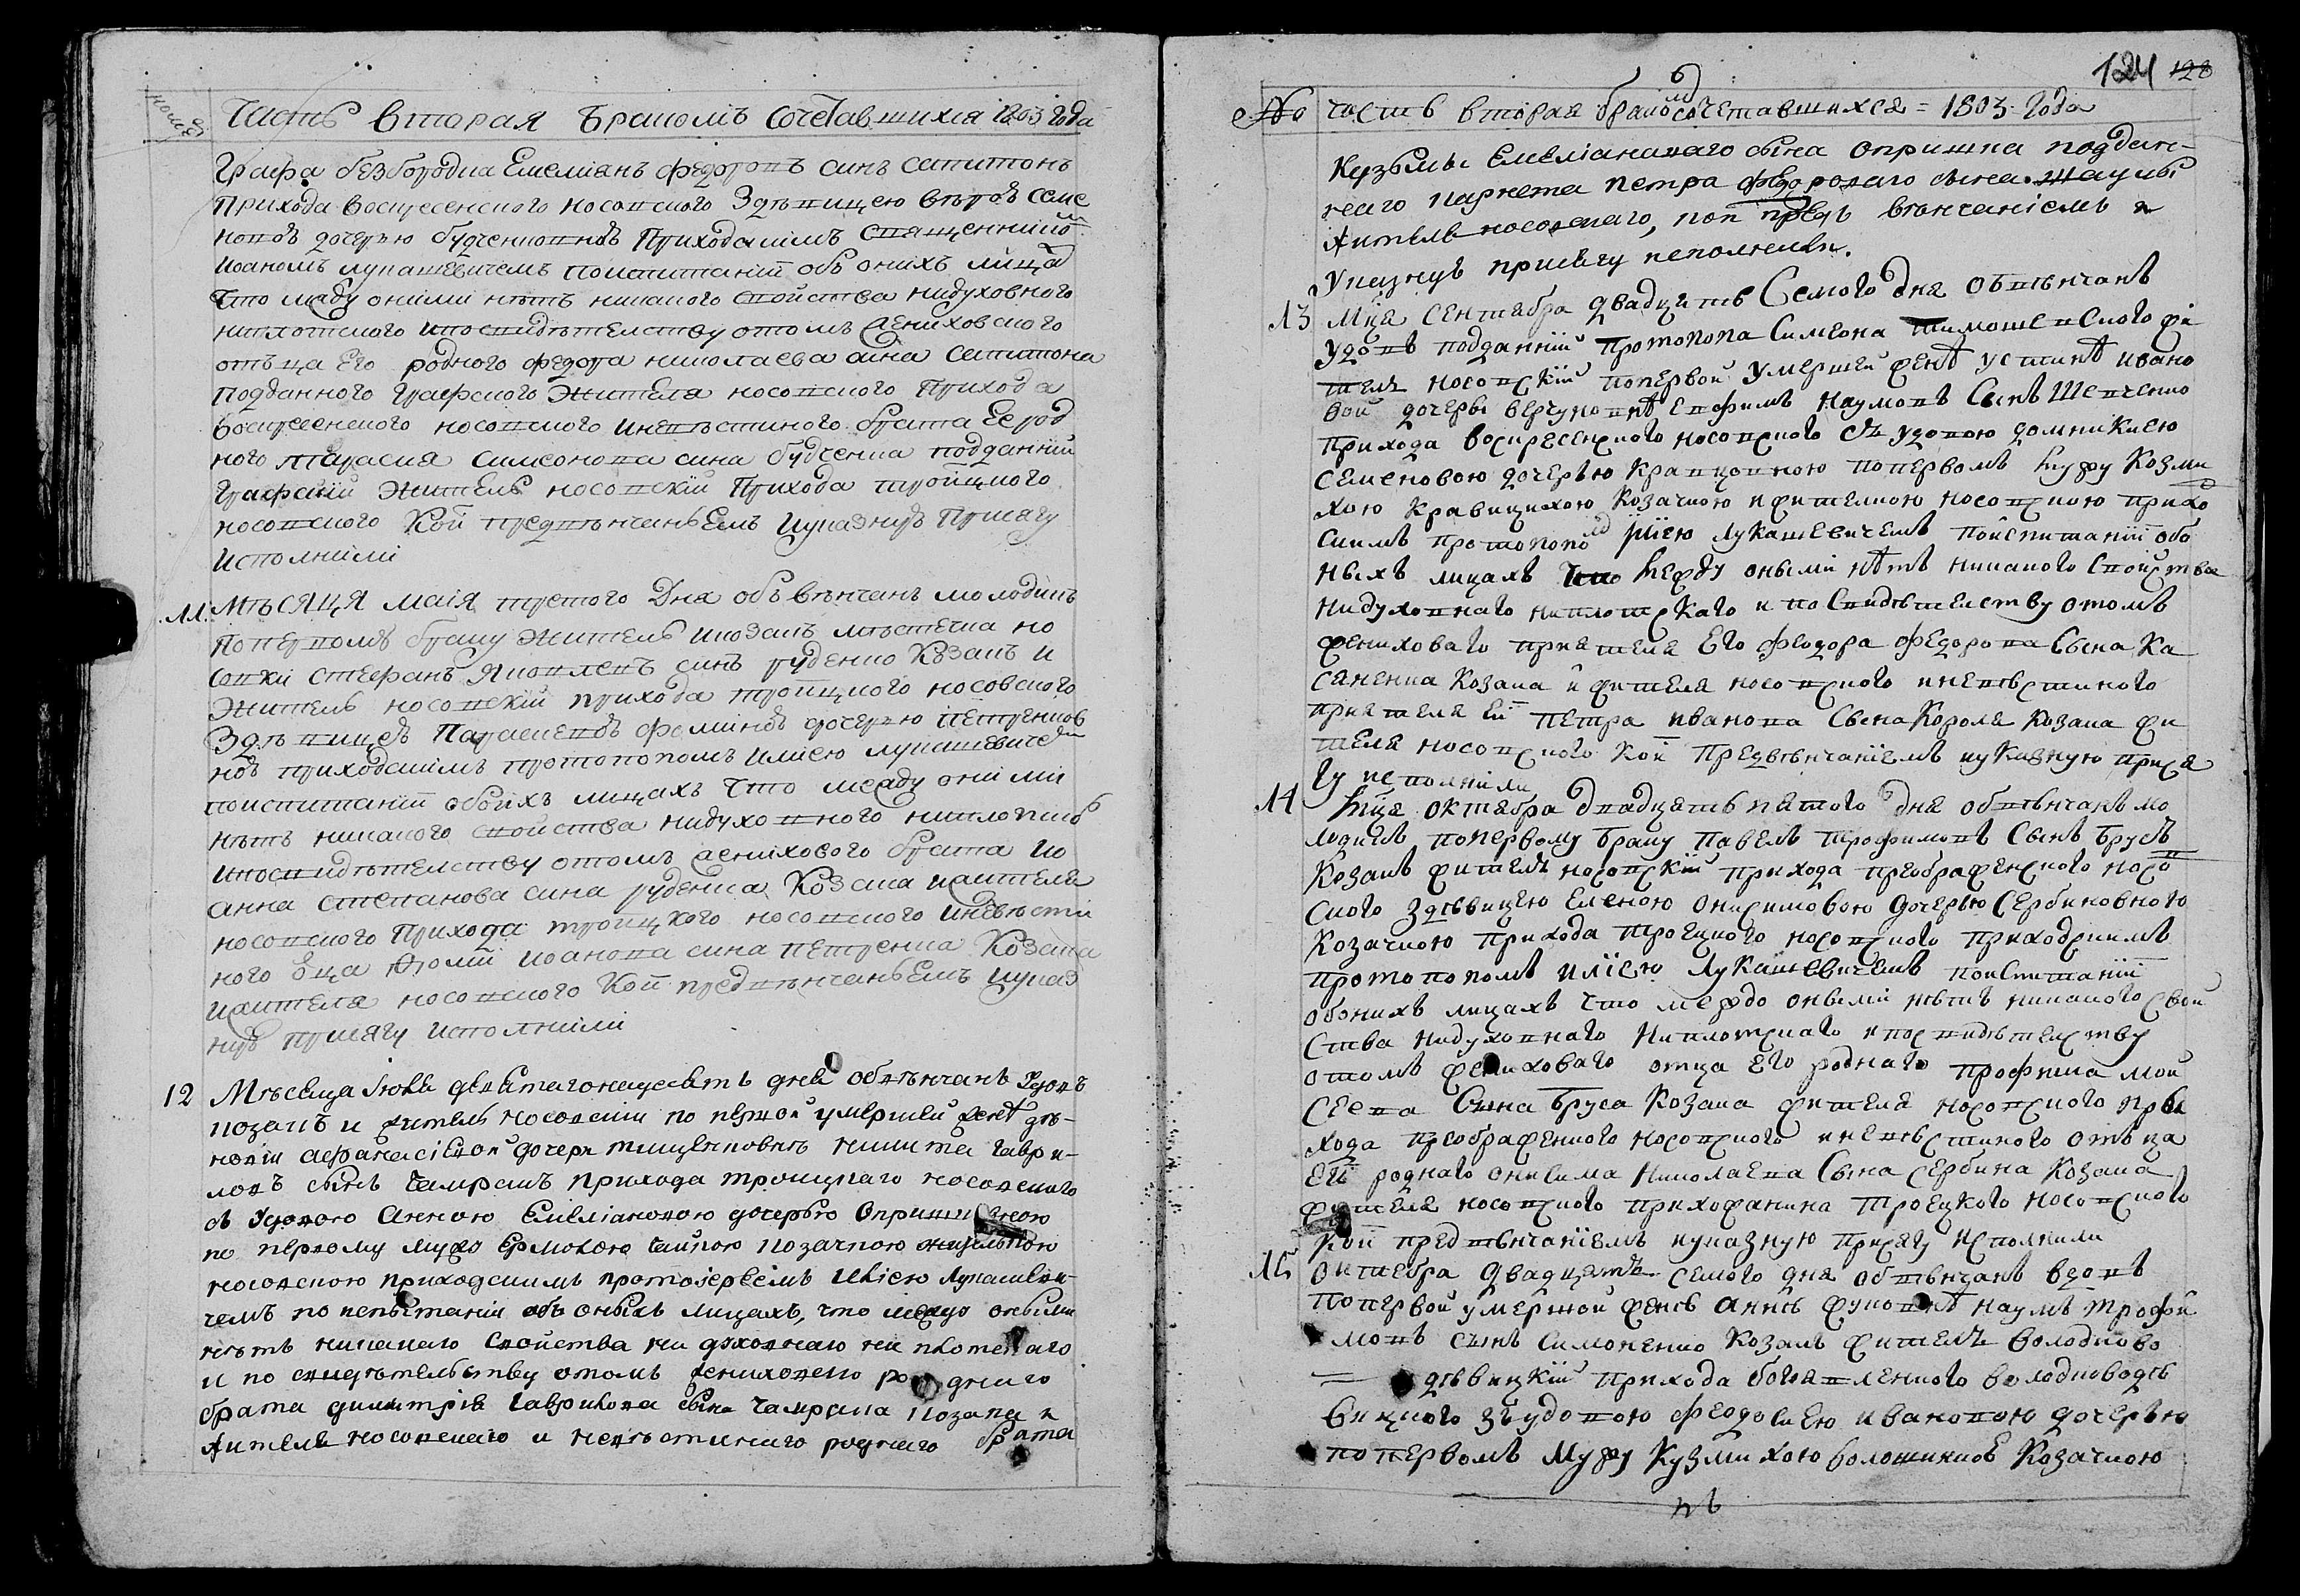 номеръ
Часть вторая бракомъ сочетавшихся 1803 года
Графа безбородка Емелианъ федоровъ синъ
Прихода воскресенского носовского здѣвицею
дочерью будченковнѣ Приходскимъ священникомъ
Иоаномъ лукашевичемъ поиспитаніи объ онихъ лицахъ
Что между оними нѣтъ никакого свойства нидуховного
ниплотского ипосвидѣтелству отомъ жениховского
отьца Его родного федора николаева сина
подданного графского Жителя носовского Прихода
воскресенского носовского иневѣстиного брата Ее род
ного тарасия симеонова сина будченка подданній
графскій Жителъ носовскій Прихода тройцкого
носовского Кои предвѣнчаньемъ иуказную Присягу
исполнили
11 Мѣсяця маія третого Дня обьвѣнчанъ молодикъ
поперв​омъ браку Житель икозакъ мѣстечка но
совки стефанъ Яковлевъ синъ руденко Козакъ и
Житель носовскій прихода тройцкого носовского
Здѣвицею Параскевою фоминою дочерью петренков
ною приходскимъ протопопомъ илиею лукашевичемъ
поиспитаніи обоихъ лицахъ Что между оними
нѣтъ никакого свойства нидуховного ниплотского
ипосвидѣтелству отомъ женихового брата ио
анна степанова сина руденка Козака ижителя
носовского Прихода тройцкого носовского иневѣсти
ного отца Фомы иоанова сина петренка Козака
ижителя носовского Кои предвѣнчаньемъ иуказ
ную Присягу исполнили
12 Мѣсеца Іюня девѣтагонадесять дня обвѣнчанъ удовъ
козакъ и житель носовскіи по первой умершей женѣ
афанасіевой дочери никита гаври-
ловъ сынъ чамракъ прихода троицкаго носовскаго
съ удовою Анною Емеліановою дочерью опришковною
по первому мужу козачкою жителькою
носовскою приходскимъ протоіереемъ Иліею лукашеви-
чемъ по испытаніи объ оныхъ лицахъ, что между оными
нѣтъ никакаго свойства ни духовнаго ни плотскаго
и по свидѣтельству отомъ жениховаго роднаго
брата димитрія гаврилова сына чамрака козака и
жителя носовскаго и невѣстинаго роднаго брата
124 128
№ часть вторая бракомъ сочетавшихся = 1803 года
Кузьмы емеліановаго сына опришка поддан-
наго петра федороваго сына
жителя носовскаго, кои предъ вѣнчаніемъ и
указную присягу исполнили.
13 Мця Сентября двадцять Семого дня обвѣнчанъ
удовъ подданній протопопа Симеона тимошевского жи
тель носовскій попервой умершей женѣ устинѣ ивано
вой дочеры верчуновнѣ Евфимъ Наумовъ Сынъ Шевченко
прихода воскресенского носовского съ удовою домникиею
Семеновою дочерью кравцовною попервомъ мужу козми
хою кравицихою козачкою ижителкою носовскою прихо
скимъ протопопомъ иліею лукашевичемъ поиспитаніи обо
ныхъ лицахъ Что между оными нѣтъ никакого свойства
нидуховнаго ниплотскаго и посвидѣтелству отомъ
жениховаго приятеля Его феодора федорова Сына Ка
сяненка козака и жителя носовского иневѣстиного
приятеля Еи петра иванова Сына Короля козака жи
теля носовского кои предвѣнчаніемъ иуказную прися
гу исполнили
14 Мця октября двадцать пятого дня обвѣнчанъ мо
лодикъ попервому браку павелъ трофимовъ Сынъ брусъ
козакъ житель носовскій прихода преображенского носов
ского здѣвицею еленою онисимовою дочерью сербиновною
козачкою прихода троецкого носовского приходскимъ
протопопомъ иліею лукашевичемъ поиспитаніи
обонихъ лицахъ что междо оными нѣтъ никакого свой
ства нидуховнаго ниплотскаго ипосвидѣтелству
отомъ жениховаго отца Его роднаго трофима мои
сеева Сына бруса козака жителя носовского при
хода преображенного носовского иневѣстиного отьца
Еи родного онисима николаева Сына сербина козака
жителя носовского прихожанина троецкого носовского
кои предвѣнчаніемъ иуказную присягу исполнили
15 октября двадцять семого дня обвѣнчанъ вдовъ
попервой умершой женѣ аннѣ наумъ трофи
мовъ сынъ симоненко козакъ житель володково
дѣвицкій прихода богоявленского володководѣ
вицкого зъудовою феодосиею ивановою дочерью
попервомъ мужу кузмихою козачкою